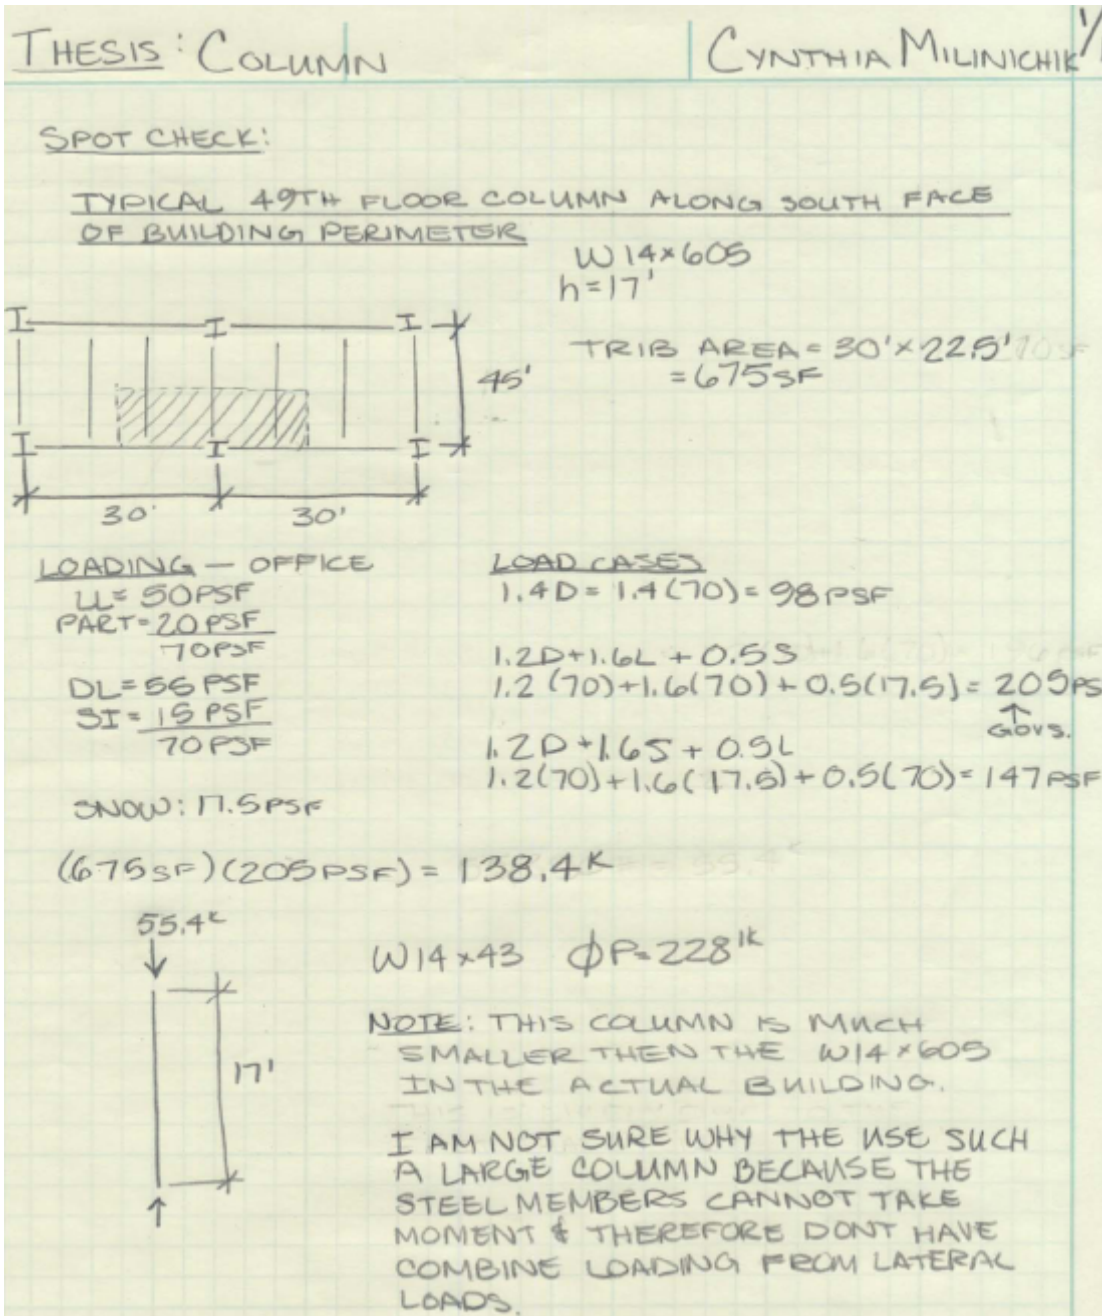 THESIS: COLUMN
CYNTHIA MILINICHIK
1/
SPOT CHECK:
TYPICAL 49TH FLOOR COLUMN ALONG SOUTH FACE
OF BUILDING PERIMETER
W14×605
h=17'
TRIB AREA = 30'×22.5'
= 675SF
45'
30'
30'
LOADING — OFFICE
LL= 50PSF
PART= 20PSF
70PSF
DL= 55 PSF
SI= 15 PSF
70PSF
SNOW: 17.5PSF
LOAD CASES
1.4D = 1.4(70) = 98PSF
1.2D+1.6L + 0.5S
1.2(70)+1.6(70) + 0.5(17.5) = 205PS
↑
GOVS.
1.2D+1.6S + 0.5L
1.2(70)+1.6(17.5) + 0.5(70) = 147PSF
(675SF)(205PSF) = 138.4K
55.4K
17'
W14×43 ϕP=228K
NOTE: THIS COLUMN IS MUCH
SMALLER THEN THE W14×605
IN THE ACTUAL BUILDING.
I AM NOT SURE WHY THE USE SUCH
A LARGE COLUMN BECAUSE THE
STEEL MEMBERS CANNOT TAKE
MOMENT & THEREFORE DONT HAVE
COMBINE LOADING FROM LATERAL
LOADS.